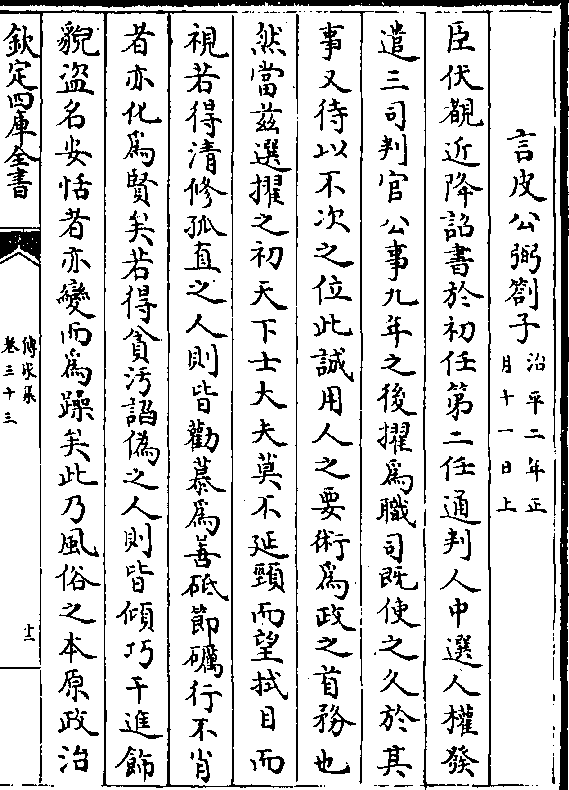 言皮公弼劄子治平二年正
月十一日上
臣伏覩近降詔書於初任第二任通判人中選人權發
遣三司判官公事九年之後擢爲職司既使之久於其
事又待以不次之位此誠用人之要術爲政之首務也
然當茲選擢之初天下士大夫莫不延頸而望拭目而
視若得清修孤直之人則皆勸慕爲善砥節礪行不肖
者亦化爲賢矣若得貪汚謟偽之人則皆傾巧干進飾
貌盜名安恬者亦變而爲躁矣此乃風俗之本原政治
欽定四庫全書
傳家集
卷三十三
十三